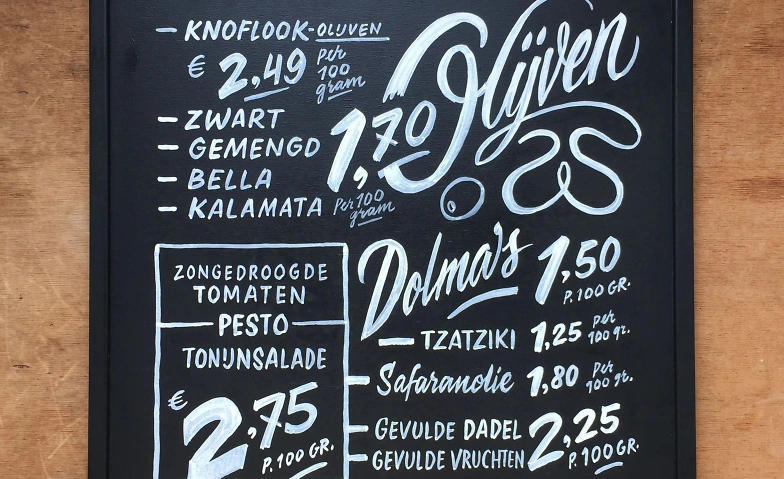 Olijven
– KNOFLOOK-OLIJVEN
€ 2,49 Per 100 gram
– ZWART
– GEMENGD
– BELLA
– KALAMATA
1,70
Per 100 gram
ZONGEDROOGDE
TOMATEN
PESTO
TONIJNSALADE
€ 2,75
P. 100 GR.
Dolma's 1,50
P. 100 GR.
– TZATZIKI 1,25 per 100 gr.
– Safaranolie 1,80 per 100 gr.
– GEVULDE DADEL
– GEVULDE VRUCHTEN
2,25
P. 100 GR.